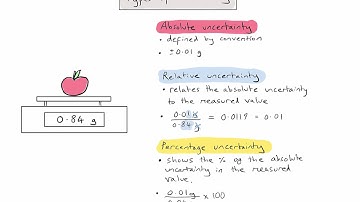 Absolute uncertainty
• defined by convention
• ±0.01 g
Relative uncertainty
• relates the absolute uncertainty
to the measured value
• 0.01g / 0.84 g = 0.0119 = 0.01
0.84 g
Percentage uncertainty
• shows the % of the absolute
uncertainty in the measured
value.
• 0.01g × 100